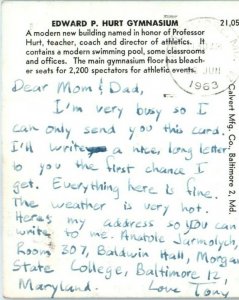 EDWARD P. HURT GYMNASIUM
21,05
A modern new building named in honor of Professor
Hurt, teacher, coach and director of athletics. It
contains a modern swimming pool, some classrooms
and offices. The main gymnasium floor has bleach-
er seats for 2,200 spectators for athletic events.
JUN
1963
Calvert Mfg. Co., Baltimore 2, Md.
Dear Mom & Dad,
I'm very busy so I
can only send you this card.
I'll write a nice, long letter
to you the first chance I
get. Everything here is fine.
The weather is very hot.
Here's my address so you can
write to me. Anatole Jarmolych,
Room 307, Baldwin Hall, Morgan
State College, Baltimore 12,
Maryland. Love Tony